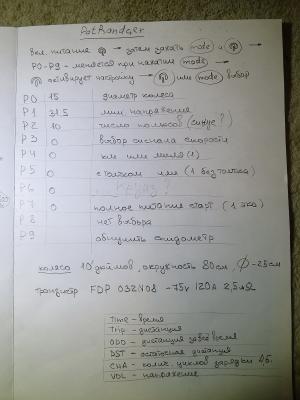 PatRandger
вкл. питание → затем зажать mode и →
P0-P9 - меняется при нажатии mode →
активирует настройку → или mode выбор
P0 15 диаметр колеса
P1 31.5 мин. напряжение
P2 10 число полюсов (синус?)
P3 0 выбор сигнала скорости
P4 0 км или мили (1)
P5 0 с толчком или (1 без толчка)
P6 0 Круиз?
P7 0 полное питание старт (1 эко)
P8 нет выбора
P9 обнулить спидометр
колесо 10 дюймов, окружность 80 см, Ø-25см
транзистр FDP 032N08 -75v 120A 2,5мΩ
Time - время
Trip - дистанция
ODO - дистанция за всё время
DST - остаточная дистанция
CHA - колич. циклов зарядки АБ.
VOL - напряжение